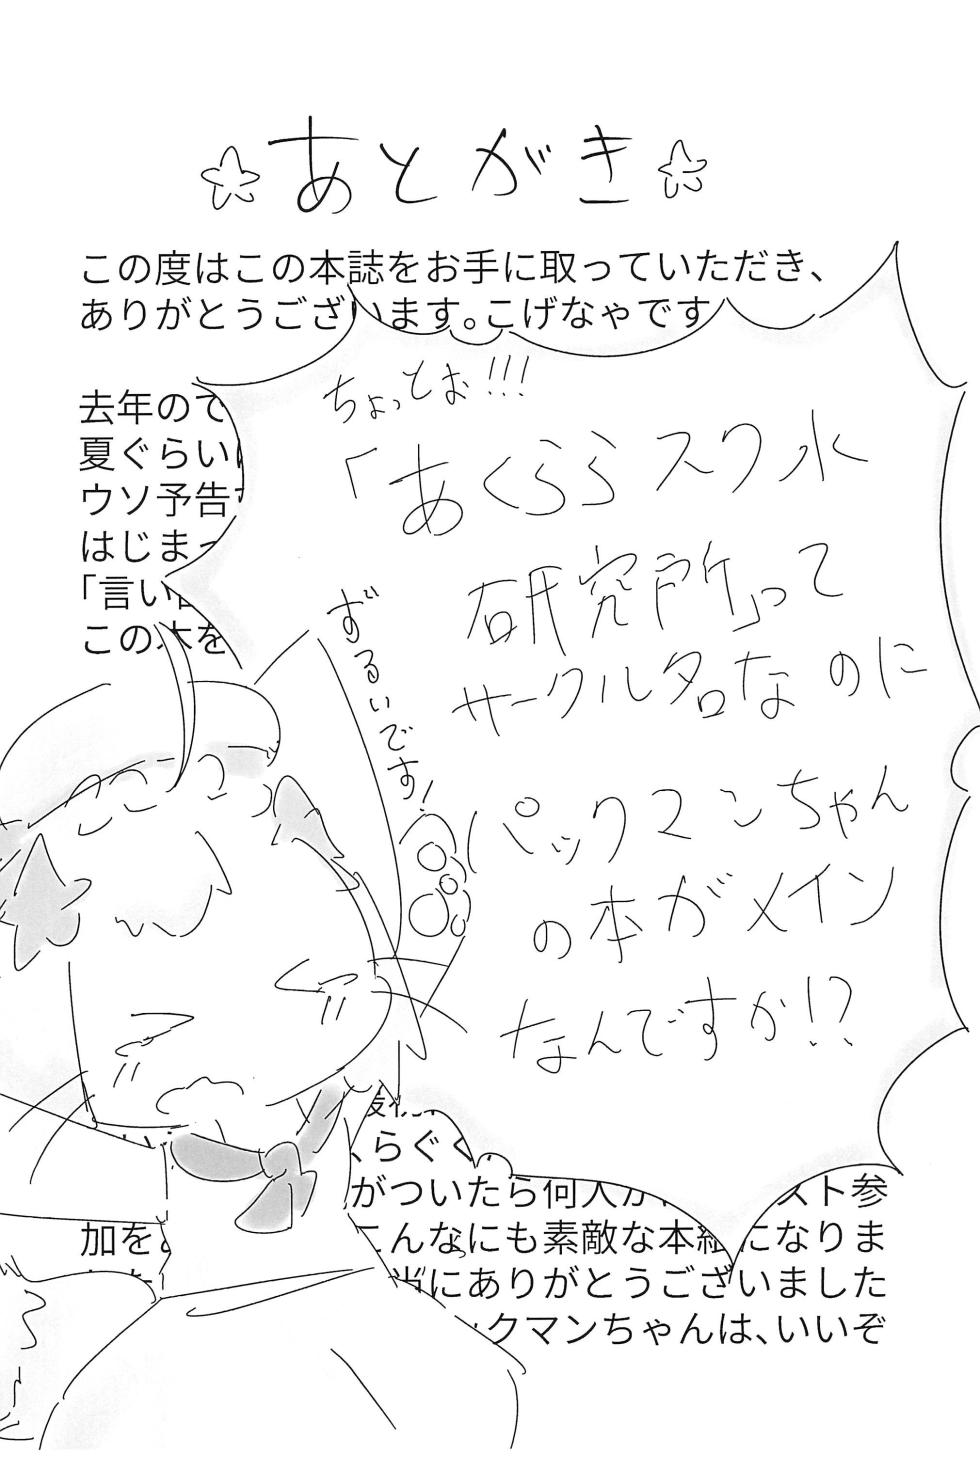 あとがき
この度はこの本誌をお手に取っていただき、
ありがとうございます。こげなゃです
ちょっとぉ!!!
「あくららスク水
研究所」って
サークル名なのに
パックマンちゃん
の本がメイン
なんですか!?
ずるいです!
去年ので
夏ぐらい
ウソ予告
はじまっ
「言い
この本を
、らぐ
がついたら何人か スト参
加を こんなにも素敵な本 になりま
当にありがとうございました
ックマンちゃんは、いいぞ